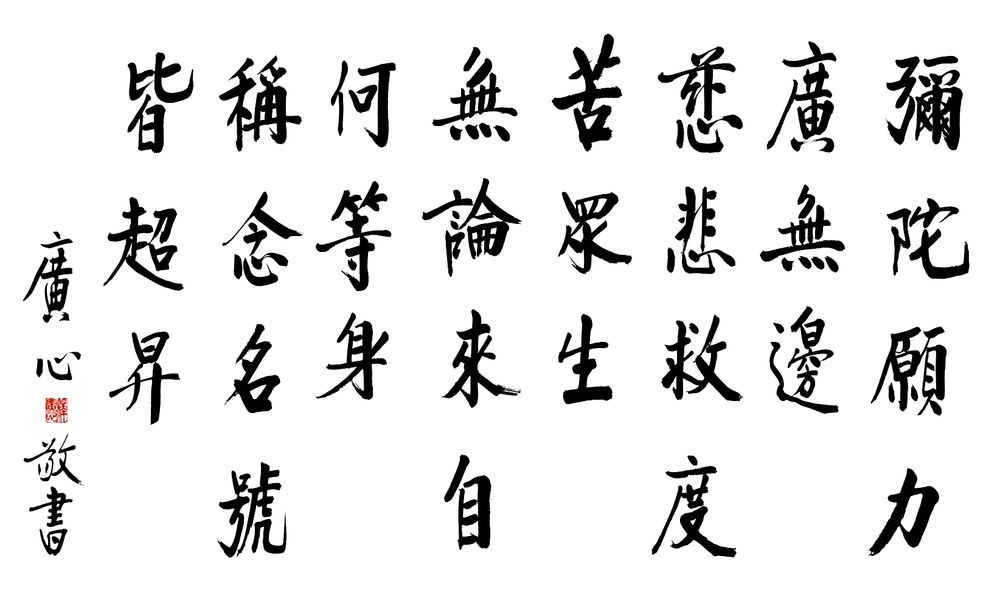 彌陀願力
廣無邊
慈悲救度
苦眾生
無論來自
何等身
稱念名號
皆超昇
廣心
敬書